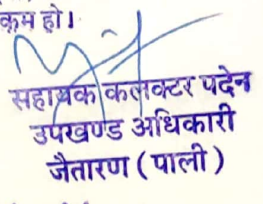 कम हो।
सहायक कलक्टर पदेन
उपखण्ड अधिकारी
जैतारण (पाली)